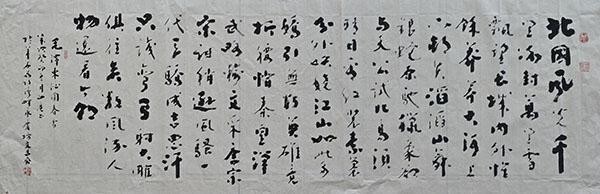 北國風光千
里冰封萬里雪
飄望長城內外惟
餘莽莽大河上
下頓失滔滔山舞
銀蛇原馳蠟象欲
與天公試比高須
晴日看紅裝素裹
分外妖嬈江山如此多
嬌引無數英雄競
折腰惜秦皇漢
武略輸文采唐宗
宋祖稍遜風騷一
代天驕成吉思汗
只識彎弓射大雕
俱往矣數風流人
物還看今朝
毛澤東沁園春雪